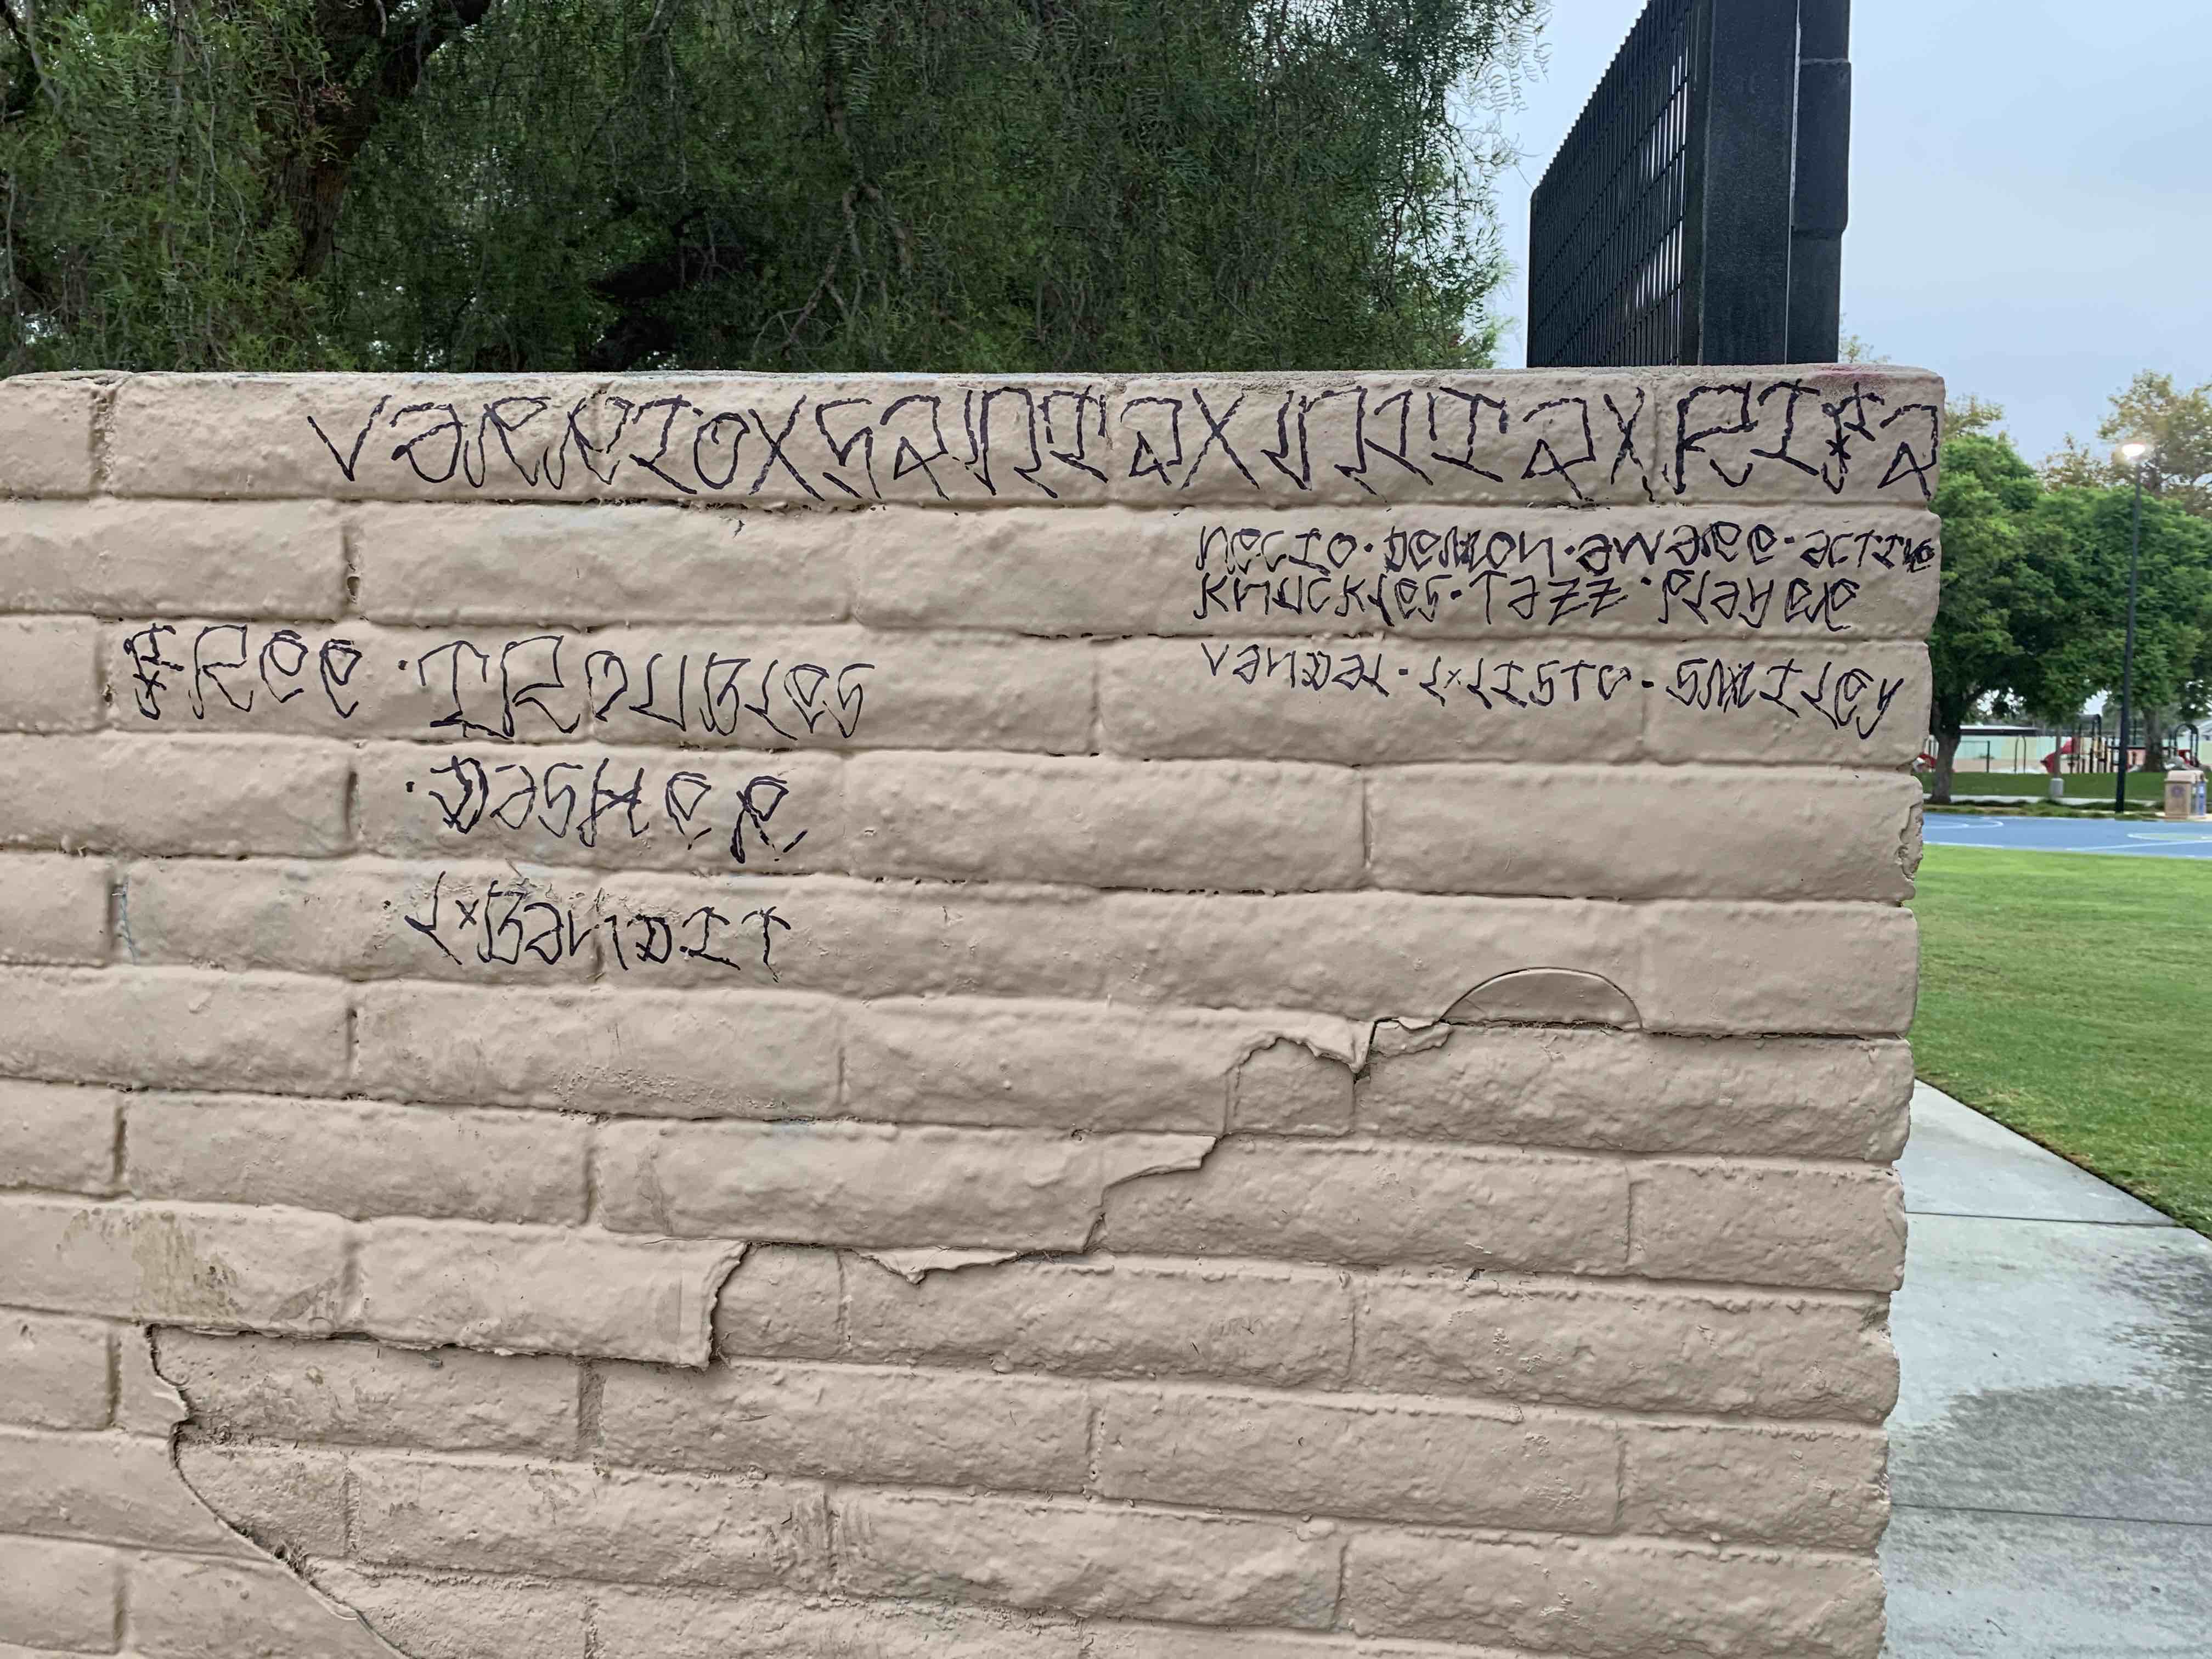 VARRIOXSANTAXNITAXRIFA
NECIO·DEMON·AWARE·ACTIVE
KNUCKLES·TAZZ·PLAYER
VANDAL·LXLISTO·SMILEY
FREE·TROUBLES
·DASHER
·LXBANDIT